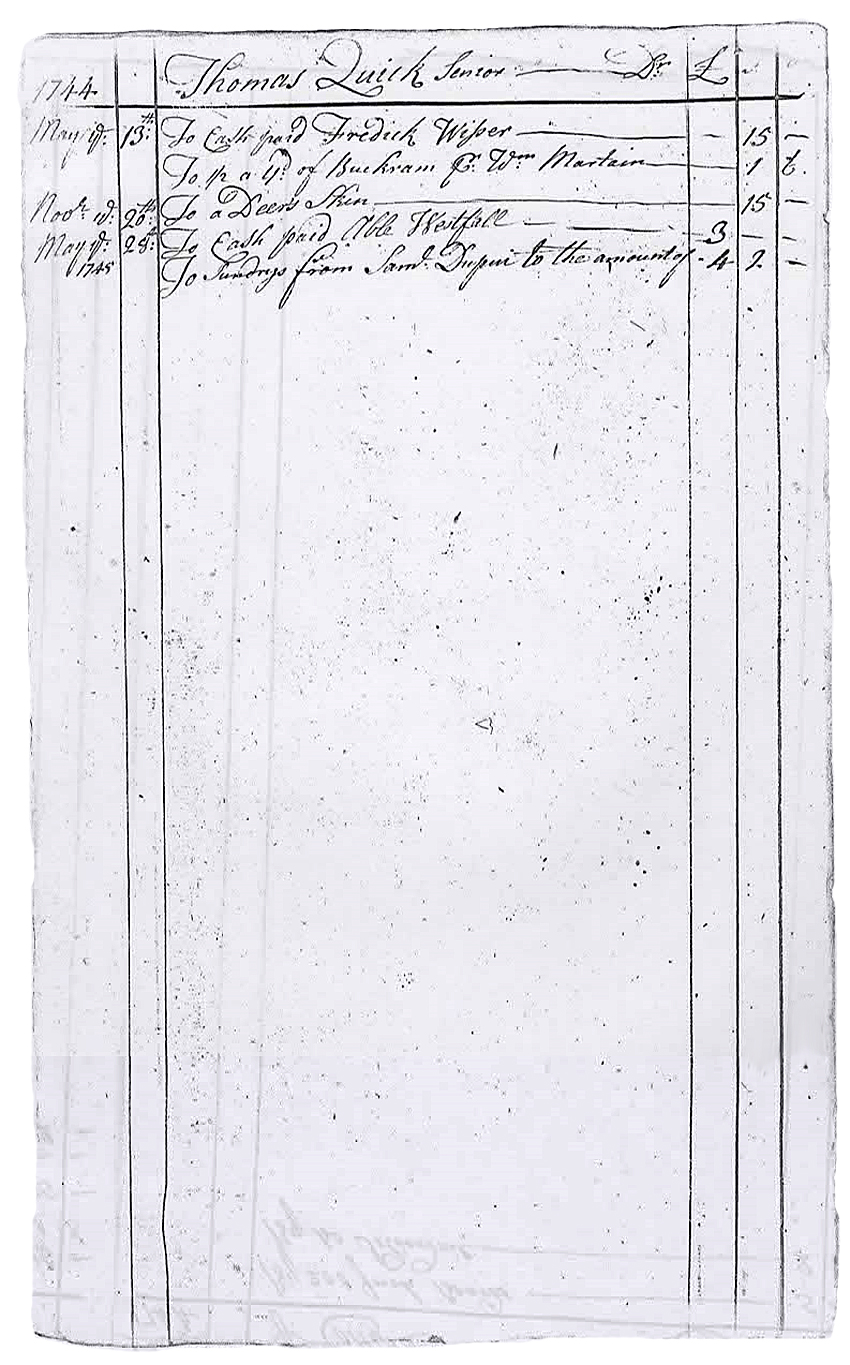 1744 Thomas Quick Senior Dr £
May ye 13th To Cash paid Fredick Wisser — 15 —
To a yd of Buckram Pr Wm Martain — 1 6
Novr ye 26th To a Deers Skin — 15 —
May ye 28th To Cash paid Able Westfall — 3 — —
1745 To Sundrys from Saml Dupui to the amount of - 4 2 —